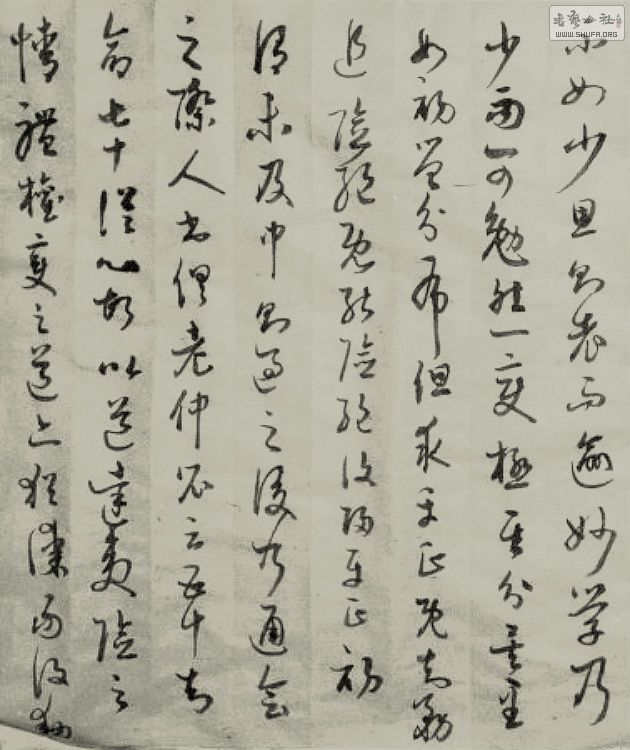 書藝公社
WWW.SHUFA.ORG
不如少思則老而逾妙學乃
少而可勉然一變極其分矣至
如初學分布但求平正既知務
追險絕既能險絕復歸平正初
謂未及中則過之後乃通會
之際人書俱老仲尼云五十知
命七十從心故以道達夷險之
情體權變之道亦猶謀而後動